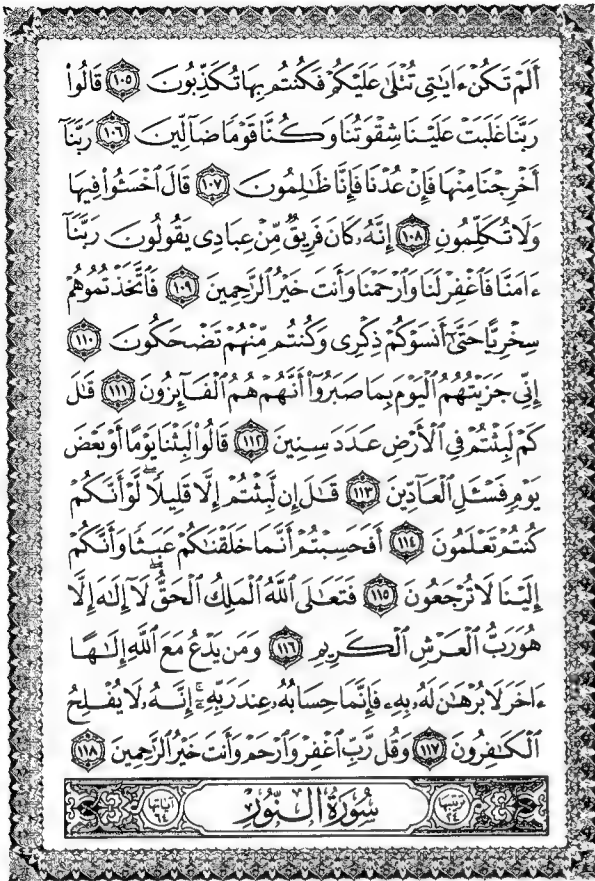 أَلَمْ تَكُنْ ءَايَـٰتِى تُتْلَىٰ عَلَيْكُمْ فَكُنتُم بِهَا تُكَذِّبُونَ ١٠٥ قَالُوا۟
رَبَّنَا غَلَبَتْ عَلَيْنَا شِقْوَتُنَا وَكُنَّا قَوْمًا ضَآلِّينَ ١٠٦ رَبَّنَآ
أَخْرِجْنَا مِنْهَا فَإِنْ عُدْنَا فَإِنَّا ظَـٰلِمُونَ ١٠٧ قَالَ ٱخْسَـُٔوا۟ فِيهَا
وَلَا تُكَلِّمُونِ ١٠٨ إِنَّهُۥ كَانَ فَرِيقٌ مِّنْ عِبَادِى يَقُولُونَ رَبَّنَآ
ءَامَنَّا فَٱغْفِرْ لَنَا وَٱرْحَمْنَا وَأَنتَ خَيْرُ ٱلرَّٰحِمِينَ ١٠٩ فَٱتَّخَذْتُمُوهُمْ
سِخْرِيًّا حَتَّىٰٓ أَنسَوْكُمْ ذِكْرِى وَكُنتُم مِّنْهُمْ تَضْحَكُونَ ١١٠
إِنِّى جَزَيْتُهُمُ ٱلْيَوْمَ بِمَا صَبَرُوٓا۟ أَنَّهُمْ هُمُ ٱلْفَآئِزُونَ ١١١ قَـٰلَ
كَمْ لَبِثْتُمْ فِى ٱلْأَرْضِ عَدَدَ سِنِينَ ١١٢ قَالُوا۟ لَبِثْنَا يَوْمًا أَوْ بَعْضَ
يَوْمٍ فَسْـَٔلِ ٱلْعَآدِّينَ ١١٣ قَـٰلَ إِن لَّبِثْتُمْ إِلَّا قَلِيلًا ۖ لَّوْ أَنَّكُمْ
كُنتُمْ تَعْلَمُونَ ١١٤ أَفَحَسِبْتُمْ أَنَّمَا خَلَقْنَـٰكُمْ عَبَثًا وَأَنَّكُمْ
إِلَيْنَا لَا تُرْجَعُونَ ١١٥ فَتَعَـٰلَى ٱللَّهُ ٱلْمَلِكُ ٱلْحَقُّ ۖ لَآ إِلَـٰهَ إِلَّا
هُوَ رَبُّ ٱلْعَرْشِ ٱلْكَرِيمِ ١١٦ وَمَن يَدْعُ مَعَ ٱللَّهِ إِلَـٰهًا
ءَاخَرَ لَا بُرْهَـٰنَ لَهُۥ بِهِۦ فَإِنَّمَا حِسَابُهُۥ عِندَ رَبِّهِۦٓ ۚ إِنَّهُۥ لَا يُفْلِحُ
ٱلْكَـٰفِرُونَ ١١٧ وَقُل رَّبِّ ٱغْفِرْ وَٱرْحَمْ وَأَنتَ خَيْرُ ٱلرَّٰحِمِينَ ١١٨
ترتيبها ٢٤ سُورَةُ النُّورِ آياتها ٦٤